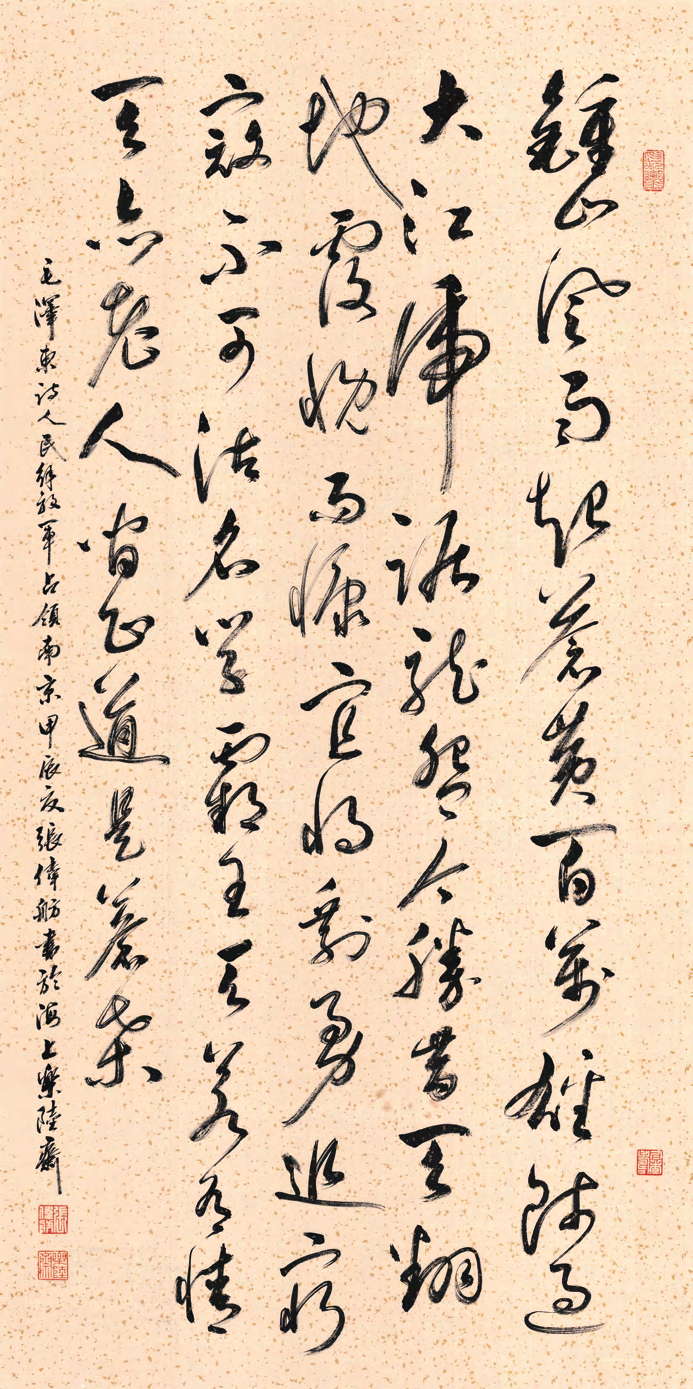 鍾山風雨起蒼黄百萬雄師過
大江虎踞龍盤今勝昔天翻
地覆慨而慷宜將剩勇追窮
寇不可沽名學霸王天若有情
天亦老人間正道是蒼桑
毛澤東詩人民解放軍占領南京甲辰夏張偉舫書於海上樂陸齋